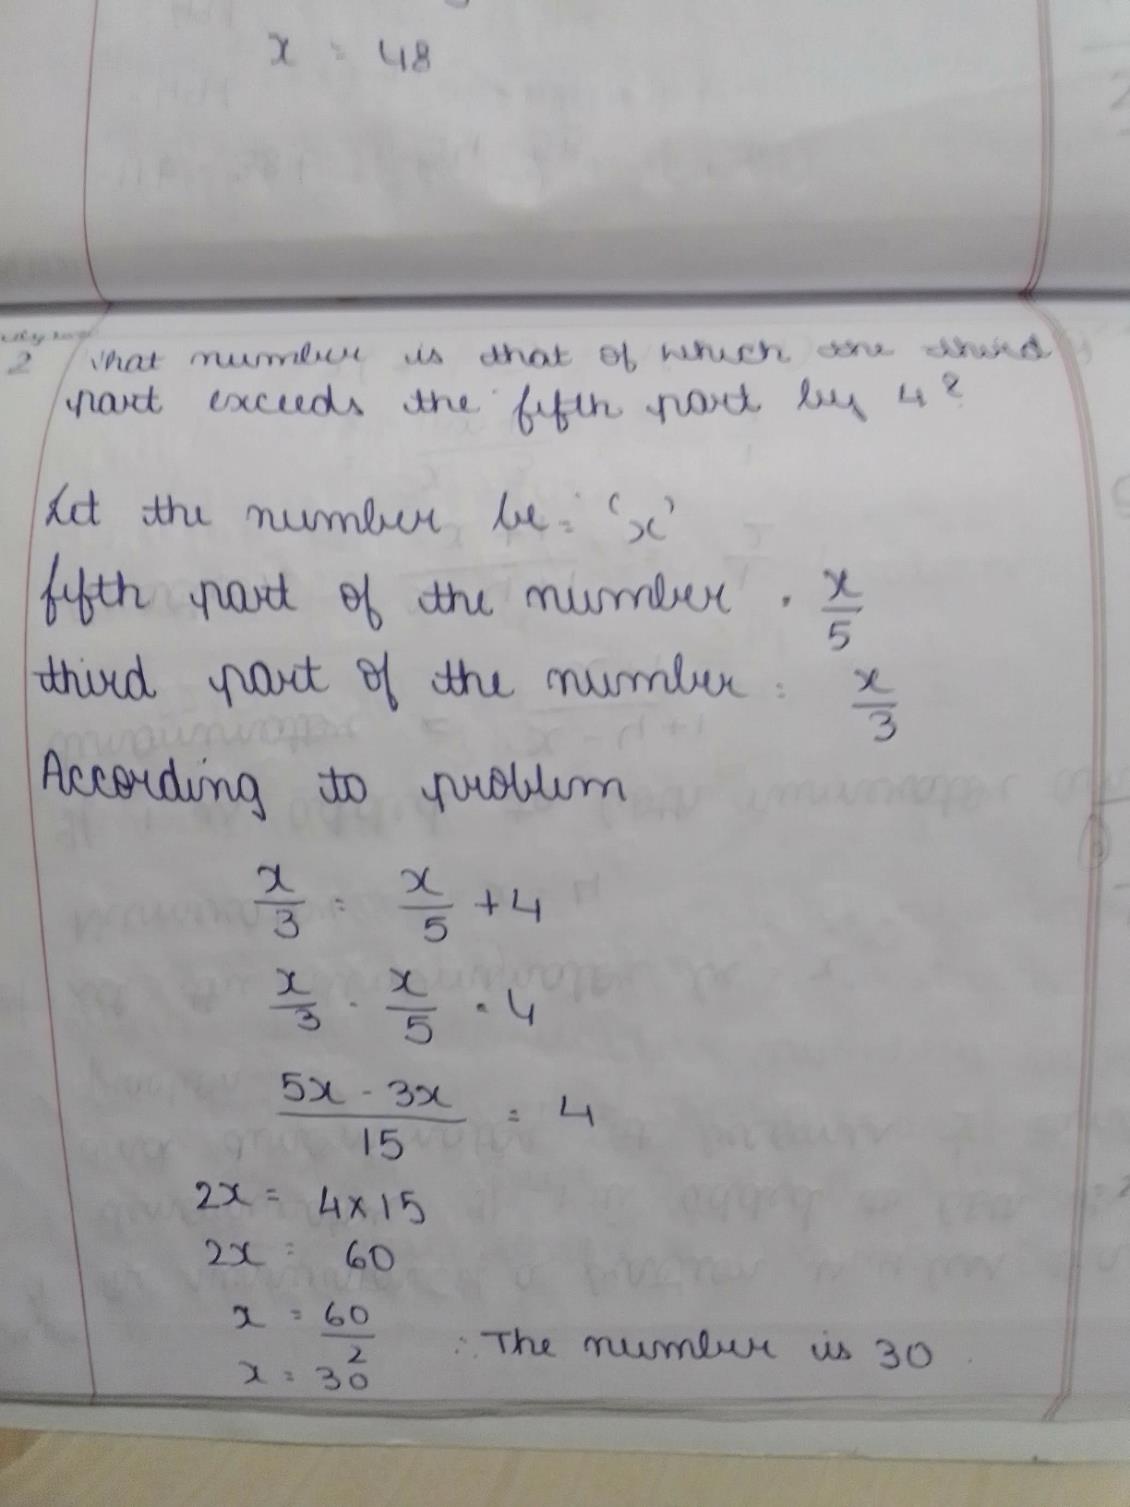 x = 48
2 What number is that of which the third
part exceeds the fifth part by 4?
Let the number be = 'x'
fifth part of the number = x/5
third part of the number = x/3
According to problem
x/3 = x/5 + 4
x/3 - x/5 = 4
5x - 3x / 15 = 4
2x = 4 x 15
2x = 60
x = 60/2
x = 30 ∴ The number is 30